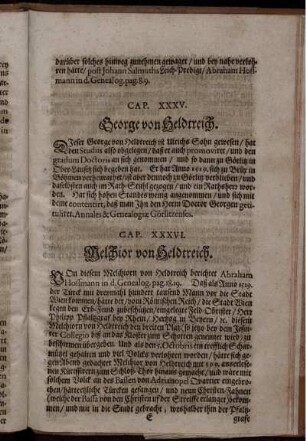 darüber solches hinweg zunehmen gewaget / und bey nahe verlohren
hätte / post Johann Salmuths Leich-Predigt / Abraham Hoffmann
in d. Genealog. pag. 8.9.
CAP. XXXV.
George von Heldtreich.
Dieser George von Heldtreich ist Ulrichs Sohn gewesen / hat
den Studiis allso obgelegen / daß er auch promovirte, und den
gradum Doctoris an sich genommen / und so dann zu Görlitz in
Ober-Lausitz sich begeben hat. Er hat Anno zu Brix in
Böhmen sich / ist aber dennoch zu Görlitz verblieben / und
daselbsten auch im Rath-Stuhl gezogen / und ein Rathsherr worden.
Hat sich hohen Standes wenig angenommen / und sich mit
deme contentiret, daß man Ihn den Herrn Doctor Georgen
Annales & Genealogiæ Görlitzenses.
CAP. XXXVI.
Melchior von Heldtreich.
Von diesem Melchiorn von Heldtreich berichtet Abraham
Hoffmann in d. Genealog. pag. 18.19. Daß als Anno 1529.
der Türck mit dreymahl hundert tausend Mann vor die Stadt
Wien kommen / hätte der / vom Römischen Reich / die Stadt Wien
kegen den Erb-Feind zubeschützen / eingelegte Feld-Obrister / Herr
Philipp Pfaltzgraf bey Rhein / Hertzog in Beyern /
Melchiorn von Heldtreich den breiten Platz / so jetzo der dem
Collegio biß an das Kloster zum Schotten genennet würde / zu
beschirmen übergeben. Und als den Octobris ein treflich
gehalten und viel Volcks verlohren worden / hätte sich
gedachter Melchior von Heldtreich mit
Kurißirern zum Schloß Thor hinaus gemacht / und wäre mit
solchem Volck an des Bassen von Adrianopel Quartier
/ Türcken gefangen / und neun Christen-Fahnen
( welche der Bassa von den Christen auf der Streiffe erlanget
/ und mit in die Stadt gebracht / weßhalber ihn der Pfaltzgrafe
E